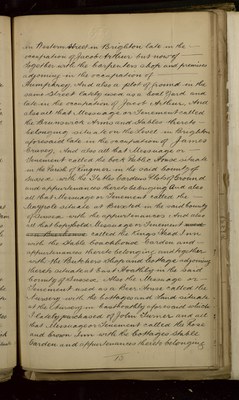 in Western Street in Brighton late in the
occupation of Jacob Arthur but now of
together with the Carpenters shop and premises
adjoining in the occupation of
Humphrey And also a plot of ground in the
same Street lately used as a Coal Yard and
late in the occupation of Jacob Arthur And
also all that Messuage or Tenement called
the Brunswick Arms and Stables thereto
belonging situate on the Level in Brighton
aforesaid late in the occupation of James
And also all that Messuage or
Tenement called the Cock Public House situate
in the Parish of Ringmer in the said County of
Sussex with the Stable Garden Plot of Ground
and appurtenances thereto belonging And also
all that Messuage or Tenement called the
situate at in the said County
of Sussex with the appurtenances And also
all that Copyhold Messuage or Tenement
called the Kings Head Inn
with the Stable Coachhouse Garden and
appurtenances thereto belonging and together
with the Butchers Shop and Cottage adjoining
thereto situate at East Hoathly in the said
County of Sussex Also the Messuage or
Tenement used as a Beer House called the
Nursery with the Cottage and Land situate
at the Nursery in Easthoathly aforesaid which
I lately purchased of John Turner and all
that Messuage or Tenement called the Rose
and Crown Inn with the Cottages Stable
Garden and appurtenances thereto belonging